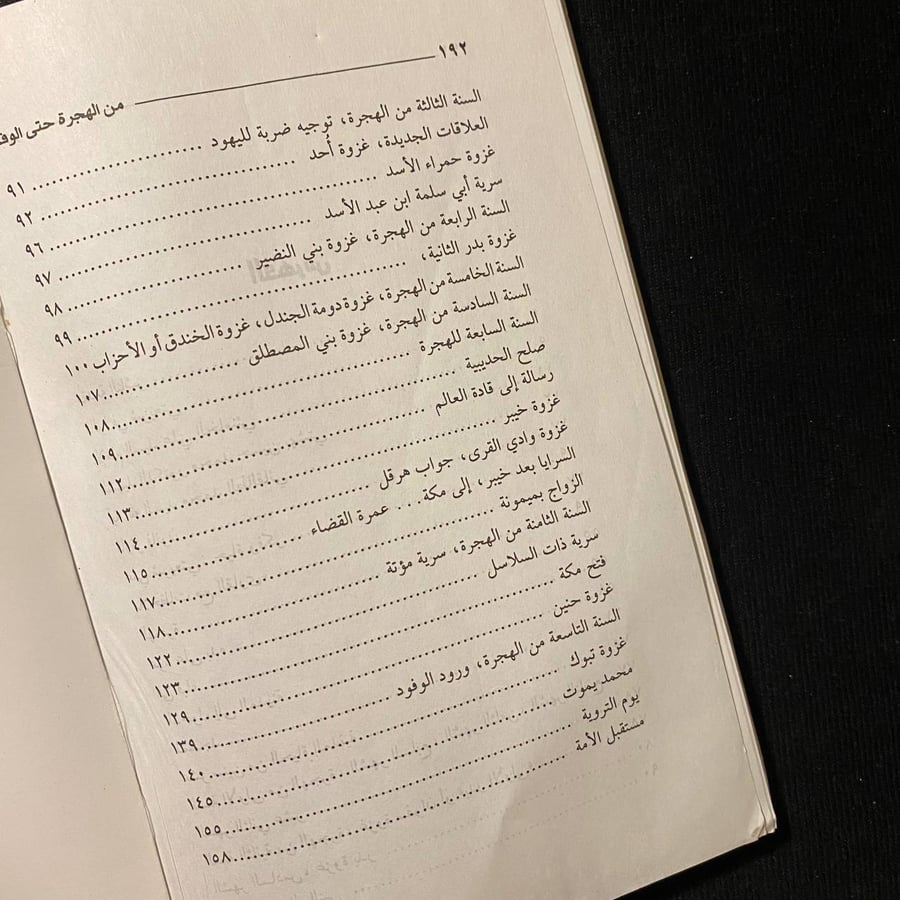 ١٩٢ من الهجرة حتى
السنة الثالثة من الهجرة، توجيه ضربة لليهود ٩١
العلاقات الجديدة، غزوة أُحد ٩٢
غزوة حمراء الأسد ٩٦
سرية أبي سلمة ابن عبد الأسد ٩٧
السنة الرابعة من الهجرة، غزوة بني النضير ٩٨
غزوة بدر الثانية، ٩٩
السنة الخامسة من الهجرة، غزوة دومة الجندل، غزوة الخندق أو الأحزاب ١٠٠
السنة السادسة من الهجرة، غزوة بني المصطلق ١٠٧
السنة السابعة للهجرة ١٠٨
صلح الحديبية ١٠٩
رسالة إلى قادة العالم ١١٢
غزوة خيبر ١١٣
غزوة وادي القرى، جواب هرقل ١١٤
السرايا بعد خيبر، إلى مكة... عمرة القضاء ١١٥
الزواج بميمونة ١١٧
السنة الثامنة من الهجرة، سرية مؤتة ١١٨
سرية ذات السلاسل ١٢٢
فتح مكة ١٢٣
غزوة حنين ١٢٩
السنة التاسعة من الهجرة، ورود الوفود ١٣٩
غزوة تبوك ١٤٠
محمد يموت ١٤٥
يوم التروية ١٥٥
مستقبل الأمة ١٥٨